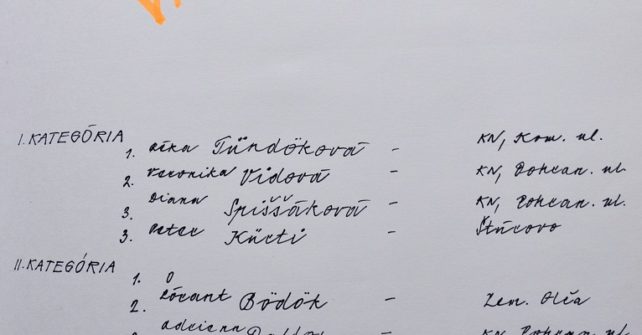 I. KATEGÓRIA
1. Réka Tündöková - KN, Kom. ul.
2. Veronika Vidová - KN, Pohran. ul.
3. Diana Spiššáková - KN, Pohran. ul.
3. Peter Kürti - Štúrovo
II. KATEGÓRIA
1. 0
2. Lóránt Bödök - Zem. Olča
Adriana KN, Pohran. ul.